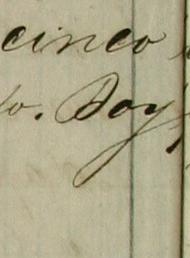 cinco
to. Doy